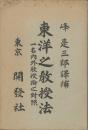 峰是三郎講補
東洋之教授法
一名内外教授論之対照
東京 開發社